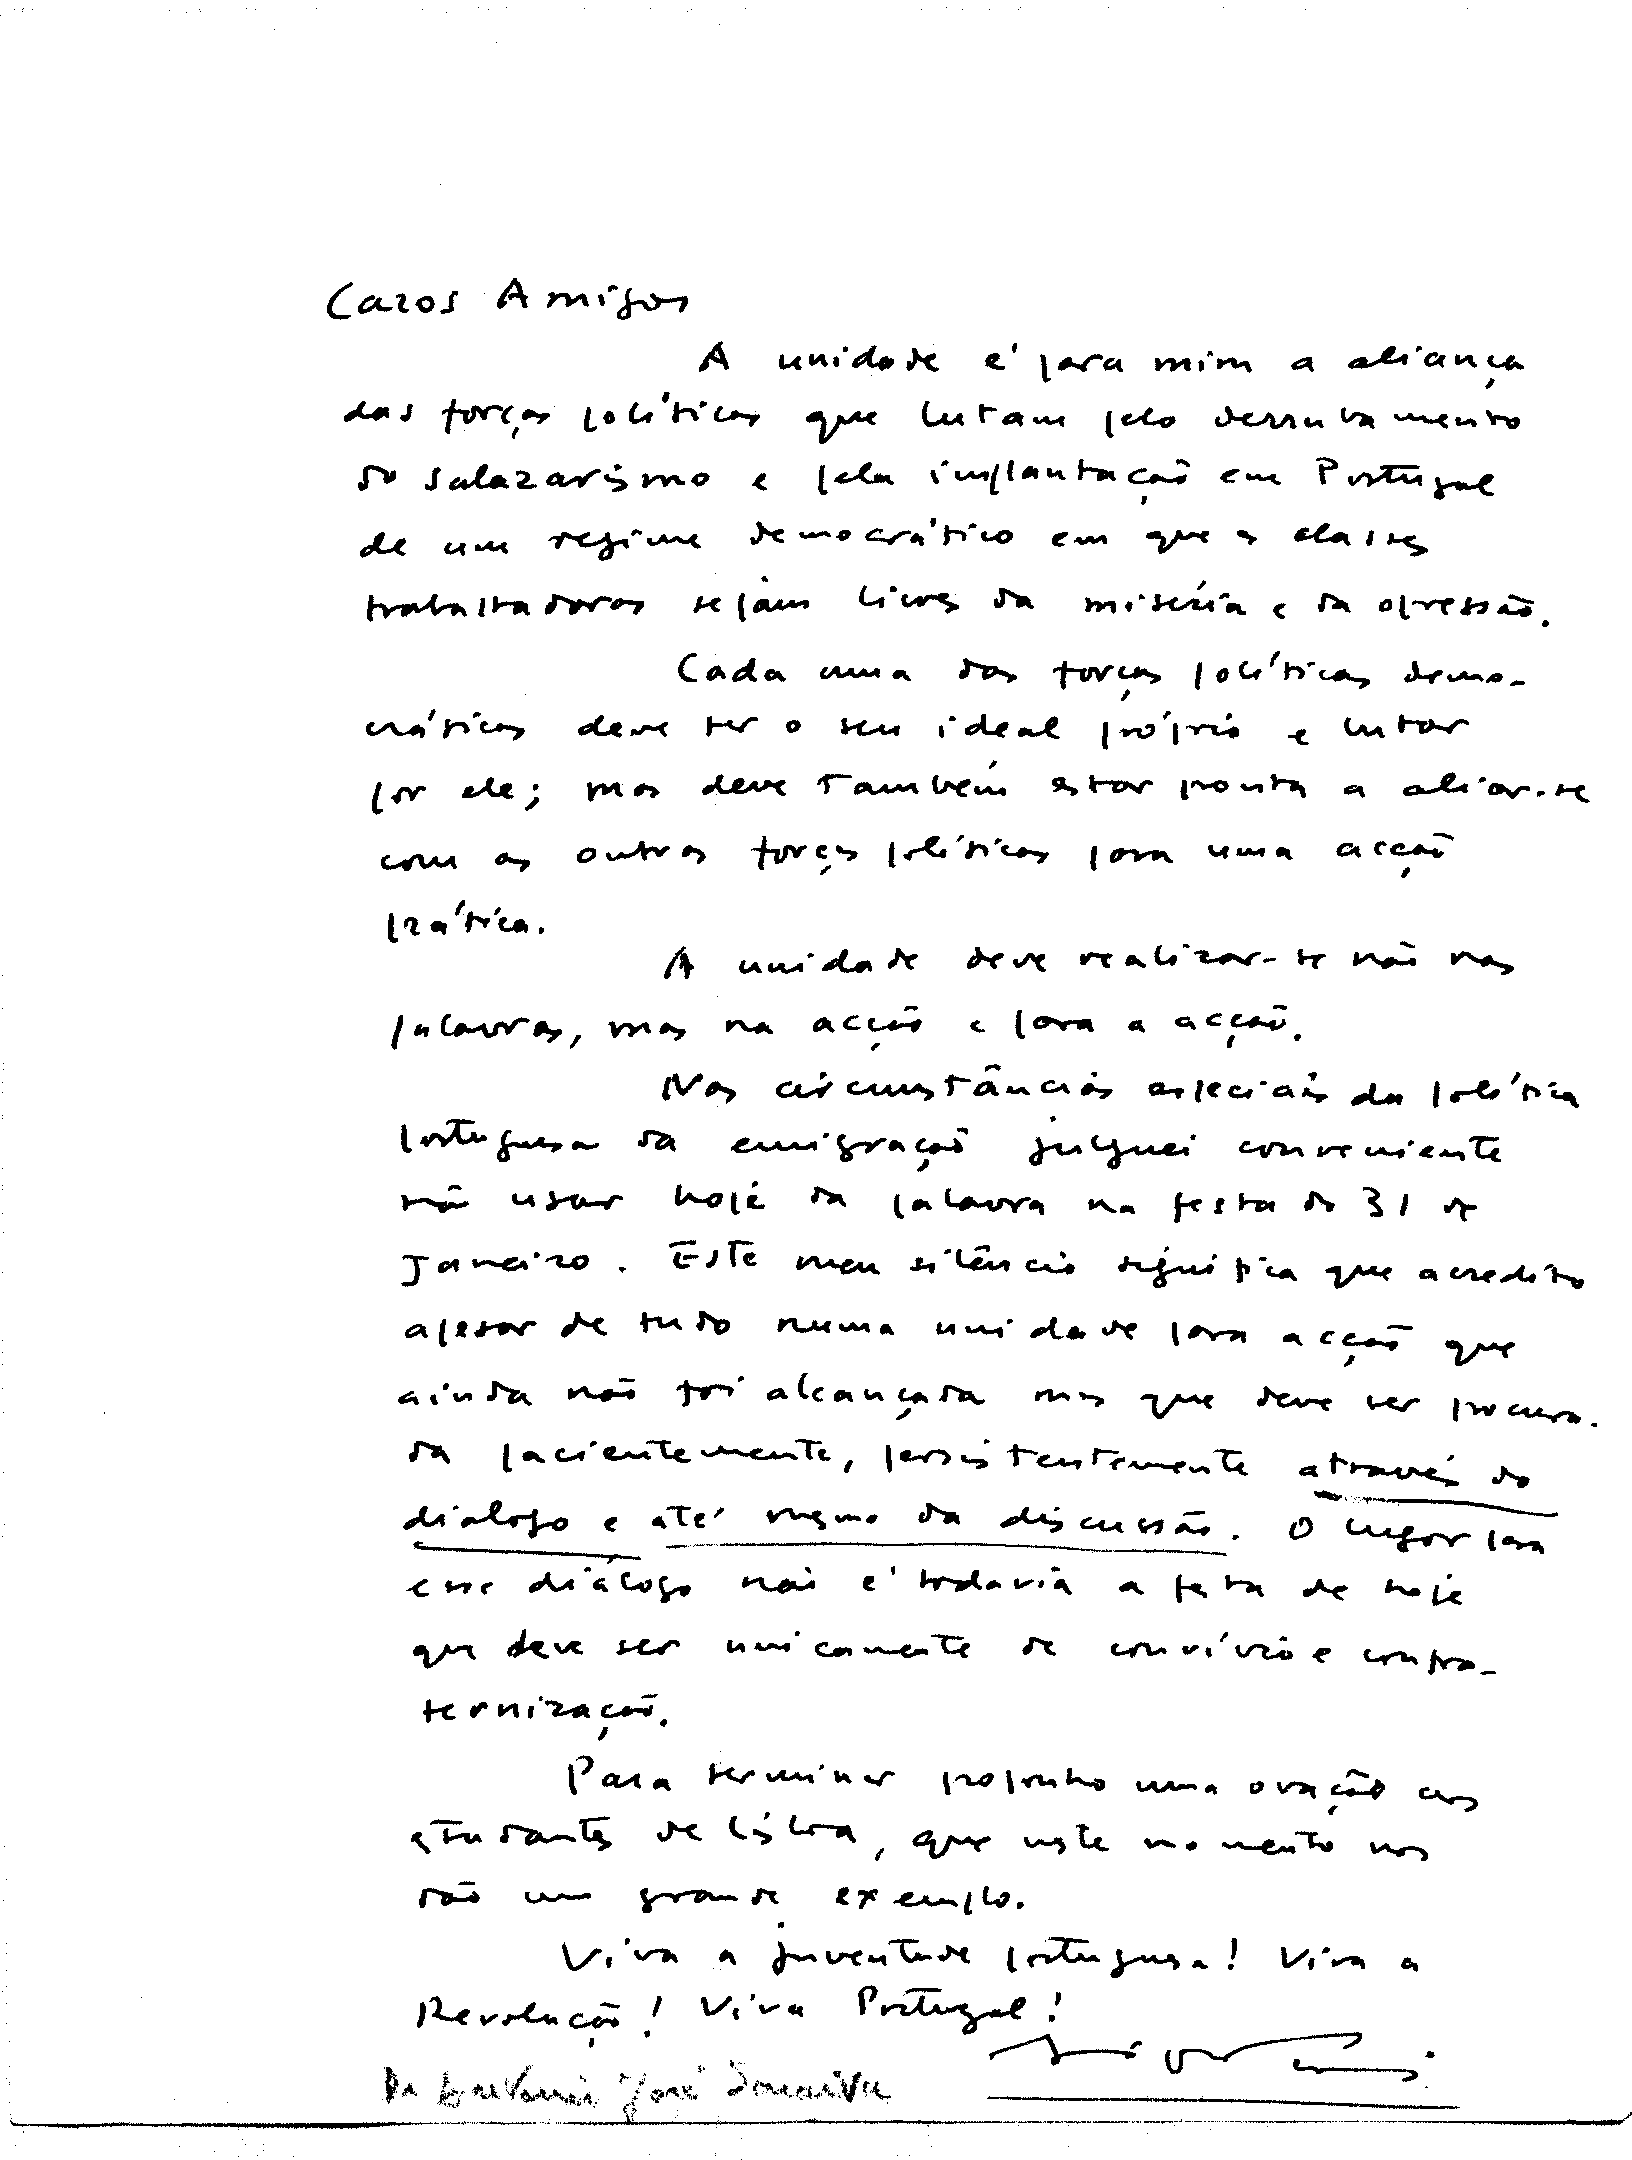 Caros Amigos
A unidade é para mim a aliança
das forças políticas que lutam pelo derrubamento
do salazarismo e pela implantação em Portugal
de um regime democrático em que as classes
trabalhadoras sejam livres da miséria e da opressão.
Cada uma das forças políticas demo-
cráticas deve ter o seu ideal próprio e lutar
por ele; mas deve também estar pronta a aliar-se
com as outras forças políticas para uma acção
prática.
A unidade deve realizar-se não nas
palavras, mas na acção e para a acção.
Nas circunstâncias especiais da política
portuguesa da emigração julguei conveniente
não usar hoje da palavra na festa do 31 de
Janeiro. Este meu silêncio significa que acredito
apesar de tudo numa unidade para acção que
ainda não foi alcançada mas que deve ser procura-
da pacientemente, persistentemente através do
dialogo e até mesmo da discussão. O lugar para
esse diálogo não é todavia a festa de hoje
que deve ser unicamente de convívio e confra-
ternização.
Para terminar proponho uma ovação aos
estudantes de Lisboa, que neste momento nos
dão um grande exemplo.
Viva a juventude portuguesa! Viva a
Revolução! Viva Portugal!
José Saraiva